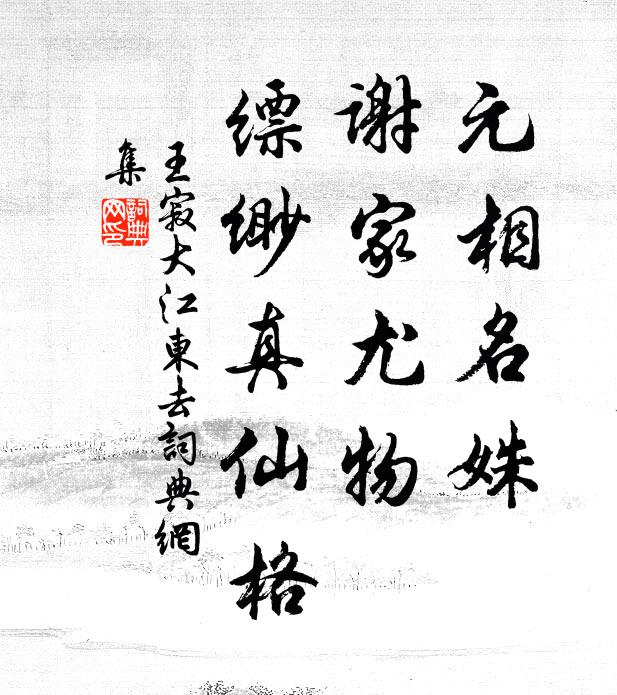 元相名姝
谢家尤物
缥缈真仙格
王寂大江東去詞典網
集
詞典
网印